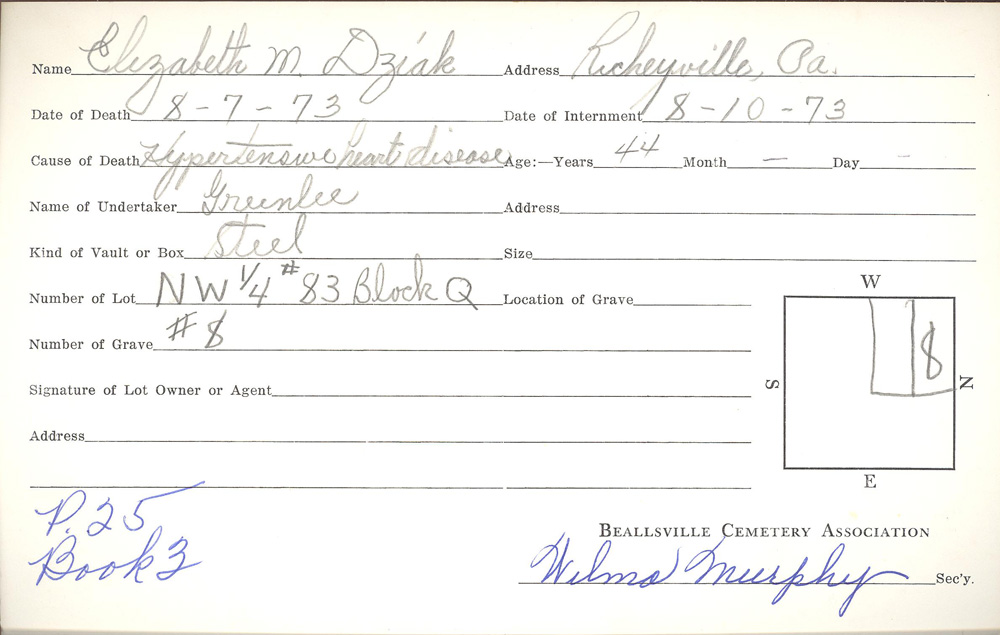 Name Elizabeth M. Dziak Address Richeyville, Pa.
Date of Death 8-7-73 Date of Internment 8-10-73
Cause of Death Hypertensive heart disease Age:—Years 44 Month — Day —
Name of Undertaker Greenlee Address
Kind of Vault or Box Steel Size
Number of Lot NW 1/4 #83 Block Q Location of Grave
Number of Grave #8
Signature of Lot Owner or Agent
Address
W
S
8
N
E
P. 25
Book 3
BEALLSVILLE CEMETERY ASSOCIATION
Wilma Murphy Sec'y.